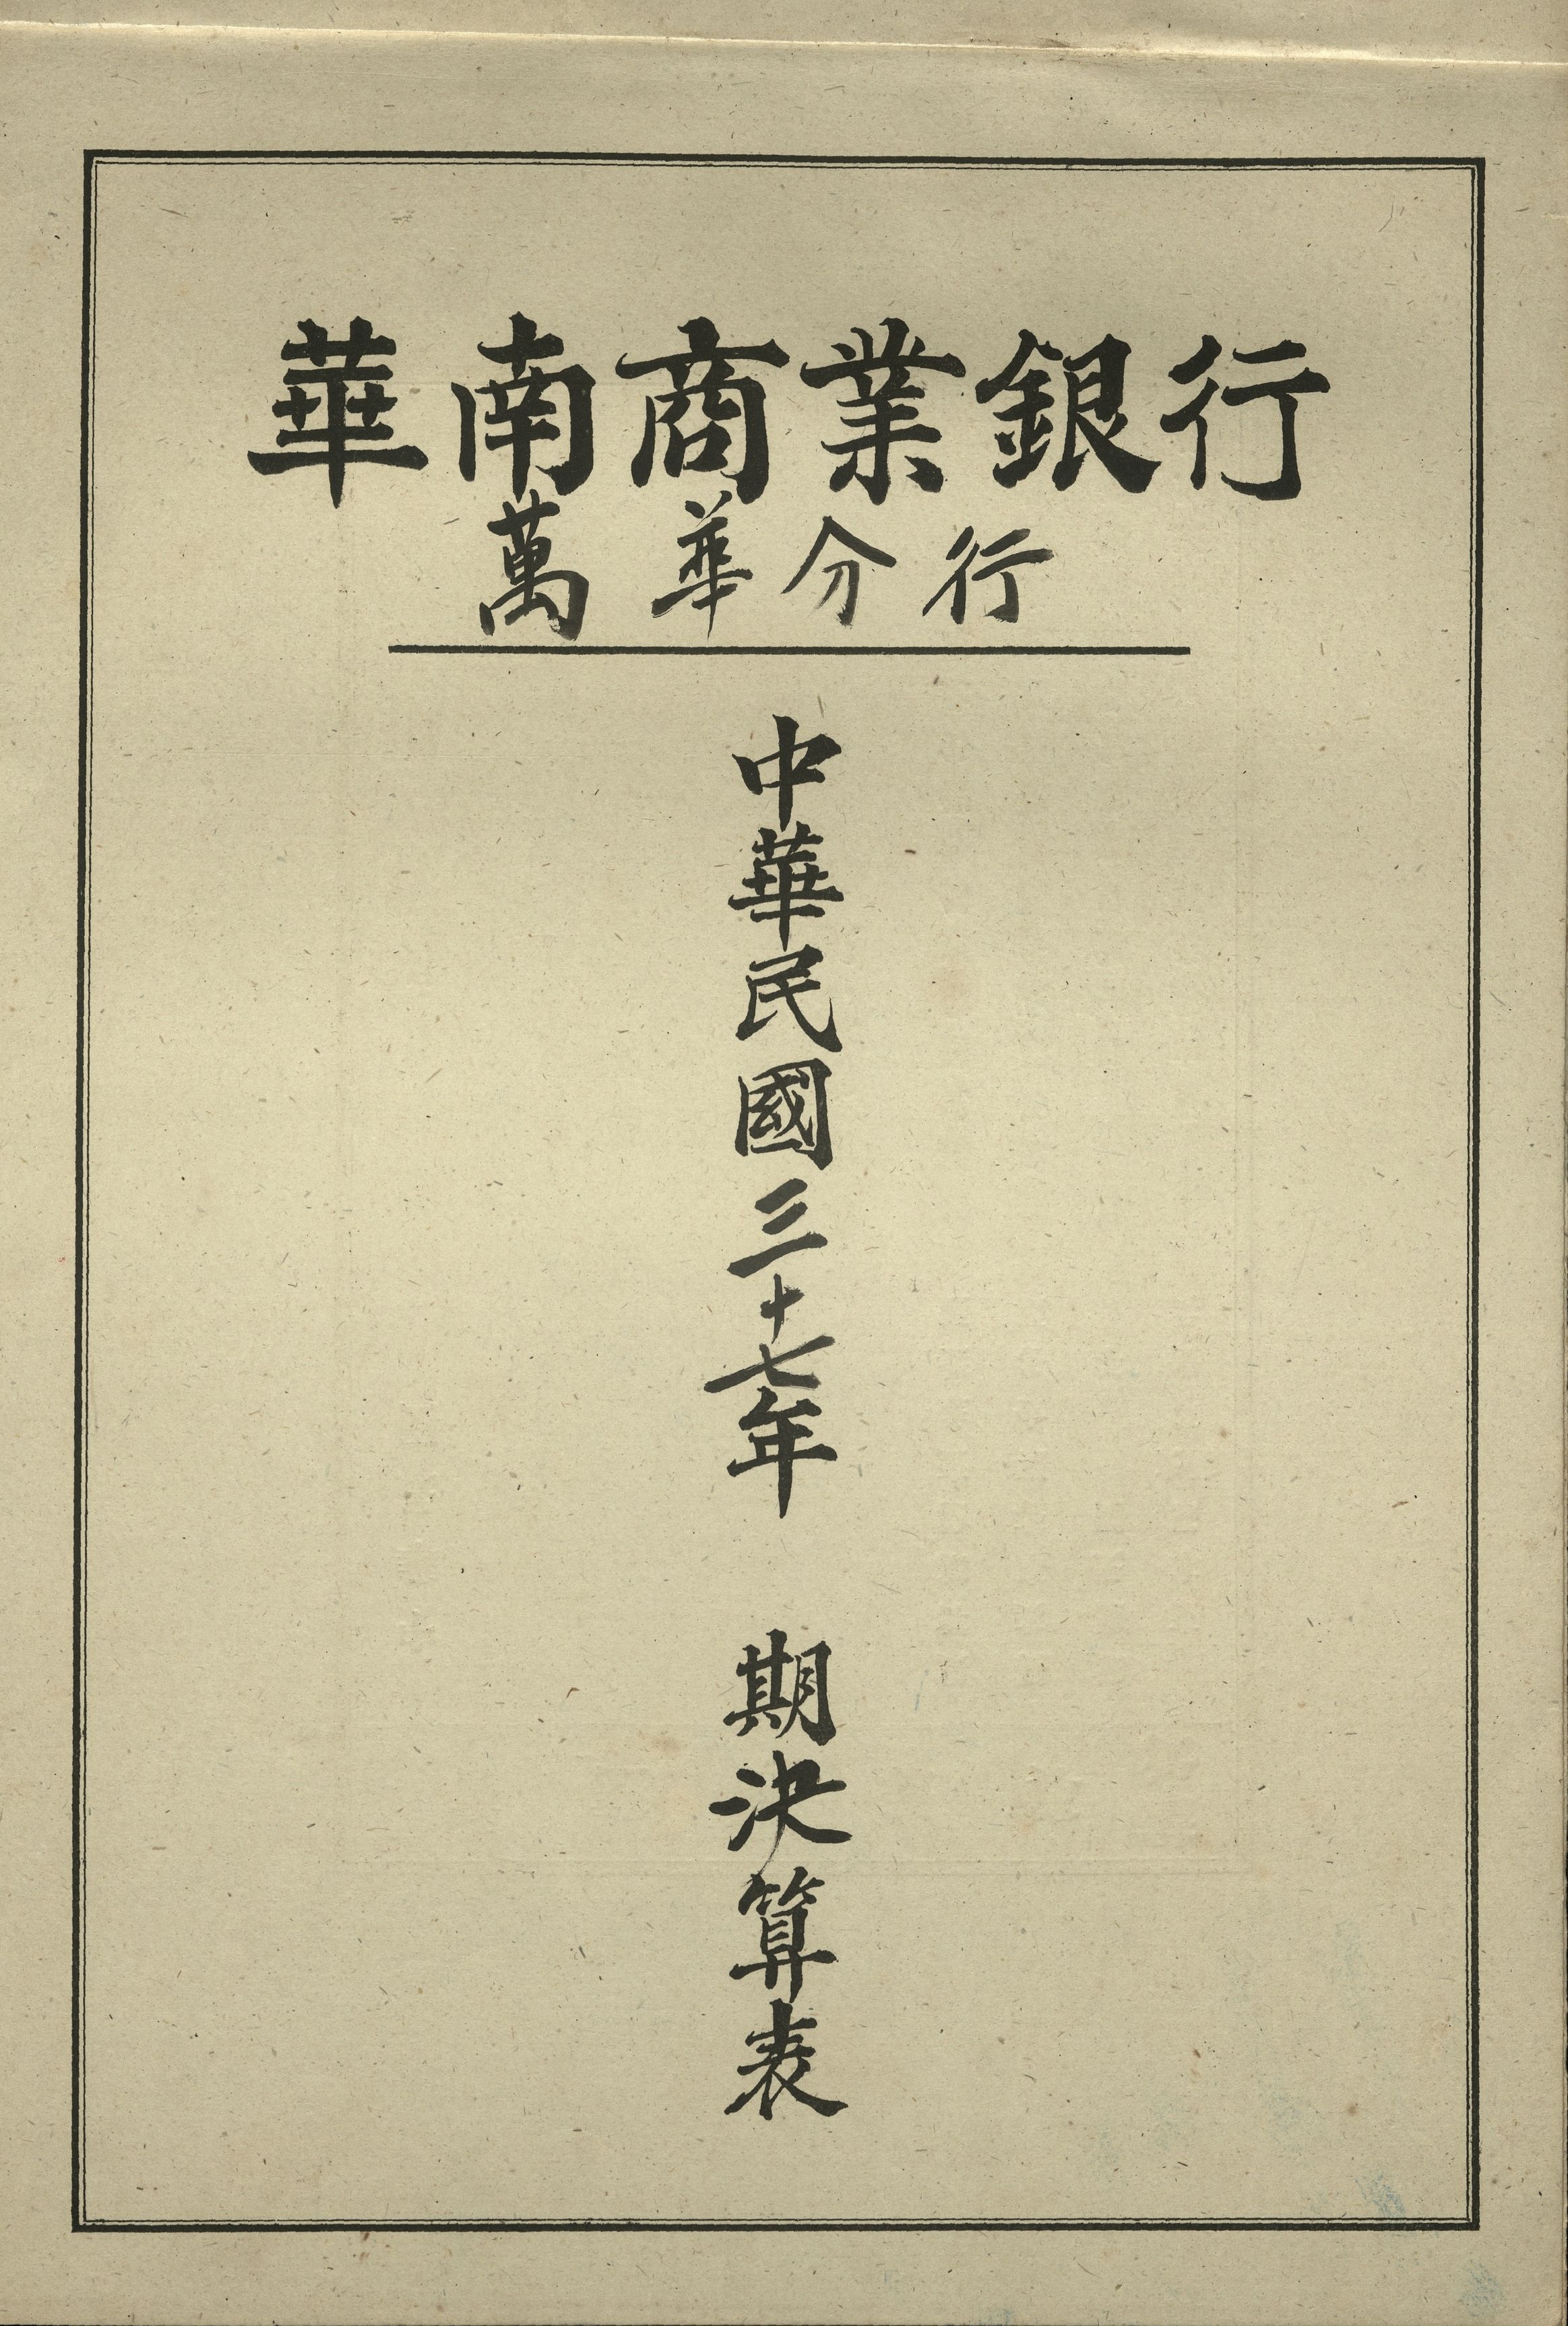 華南商業銀行
萬華分行
中華民國三十七年 期決算表